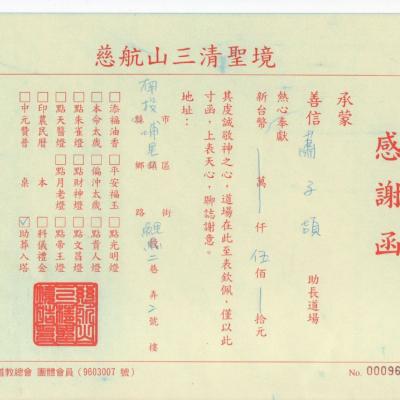 慈航山三清聖境
感謝函
承蒙
善信 蕭子頡 助長道場
熱心奉獻
新台幣 萬 仟 伍 佰 拾元
其虔誠敬神之心，道場在此至表欽佩，僅以此
寸函，上表天心，聊誌謝意。
地址： 南投 縣市 埔里 鄉鎮區 路街 巷 弄 號 樓
□添福油香 □平安福玉 □點光明燈
□本命太歲 □偏沖太歲 □點貴人燈
□點朱雀燈 □點財神燈 □點文昌燈
□點天醫燈 □點月老燈 □點帝王燈
□印農民曆 本 □科儀禮金
□中元贊普 桌 ☑助葬入塔
道教總會 團體會員（9603007 號）
No. 00096